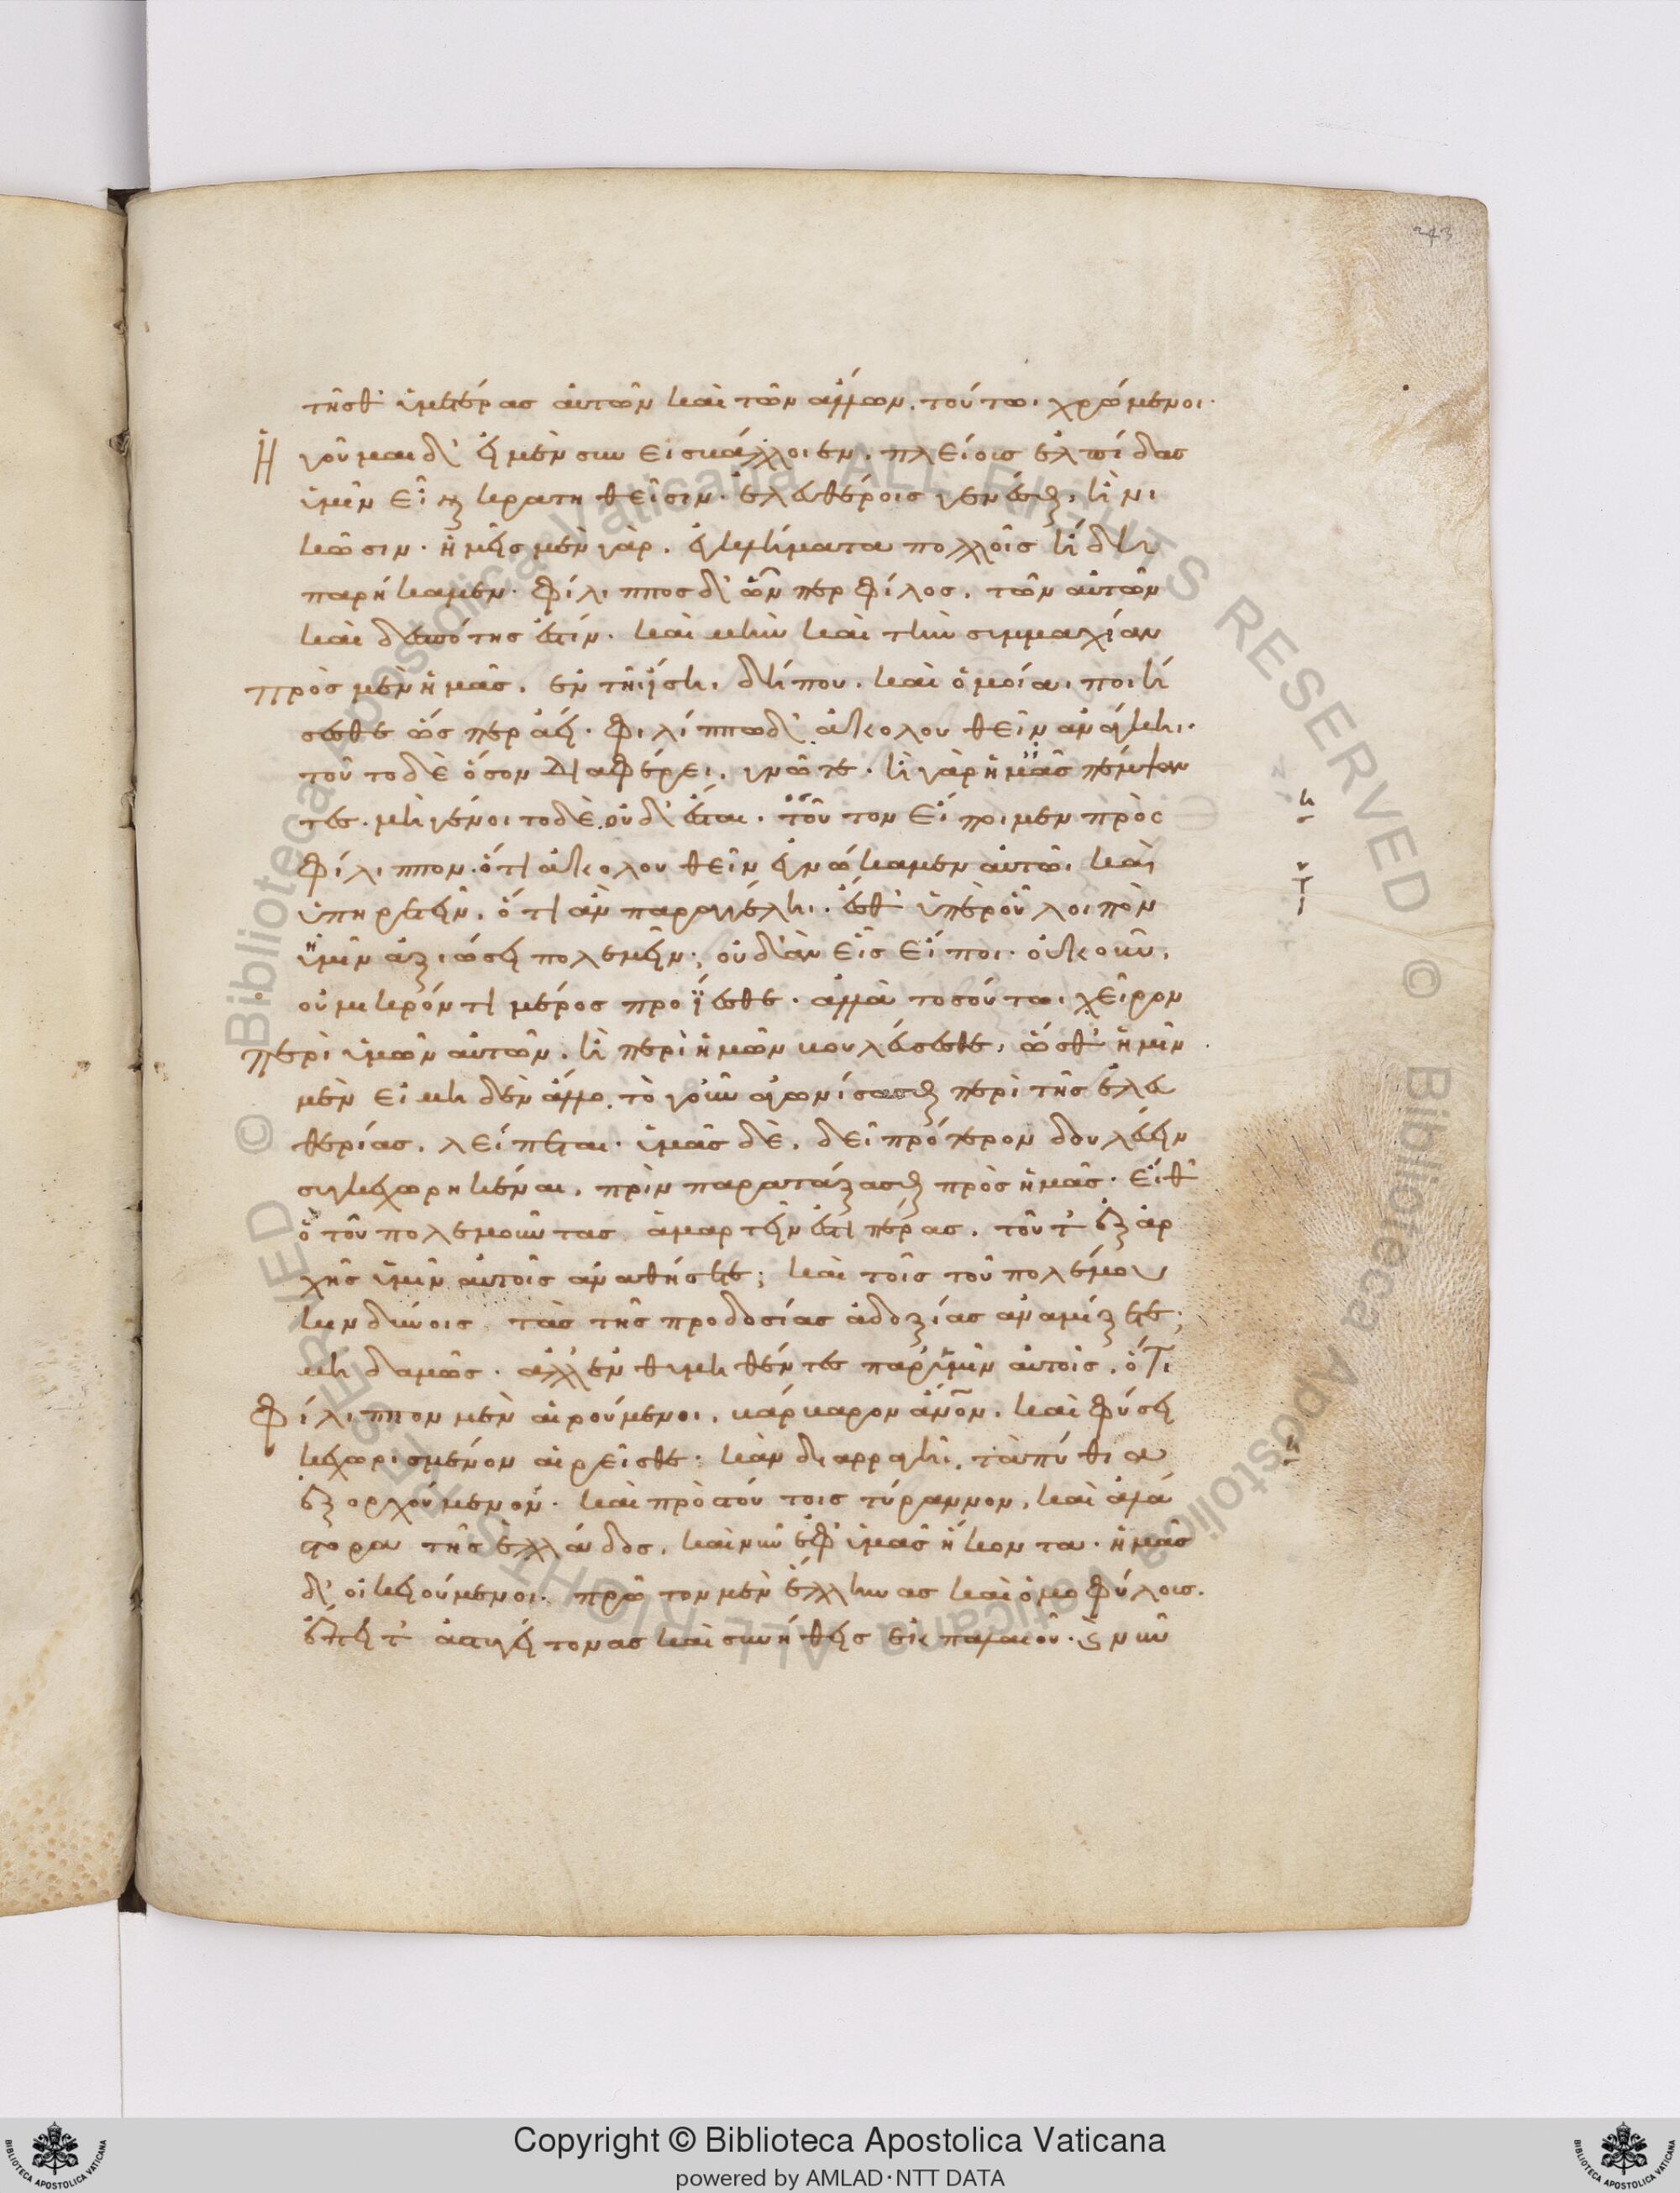 243
τῆσθ' ὑμετέρας αὐτῶν καὶ τῶν ἄλλων. τούτωι χρώμενοι·
Ἡγοῦμαι δ' εἰ μὲν συμ
ὑμῖν εἶναι κρατηθεῖσιν. ἐλευθέροις γενέσθαι, ἢ νι
κῶσιν· ἡμεῖς μὲν γὰρ, ἐγκλήματα πολλοῖς ἤδη
παρήκαμεν· φίλιππος δ' ὧνπερ φίλος, τῶν αὐτῶν
καὶ δεσπότης ἐστίν. καὶ μὴν καὶ τὴν συμμαχίαν
πρὸς μὲν ἡμᾶς, ἐν τῆι ἴσηι δήπου, καὶ ὁμοίαι ποιή
σεσθε ὥσπερ ἀεί· φιλίππω δ' ἀκολουθεῖν ἀνάγκη·
τοῦτο δὲ ὅσον διαφέρει, γνῶτε· ἢ γὰρ ἡμᾶς πέμψαν
τες· μὴ γένοιτο δὲ οὐδ' ἔσται· τοῦτον εἴποιμεν πρὸς
φίλιππον· ὅτι ἀκολουθεῖν ἐγνώκαμεν αὐτῶι καὶ
ὑπηρετεῖν, ὅ τι ἂν παραγγέλληι· ἔσθ' ὑπὲρ οὗ λοιπὸν
ὑμῖν ἀξιώσει πολεμεῖν; οὐδ' ἂν εἷς εἴποι· οὐκοῦν,
οὐ μικρόν τι μέρος προΐεσθε· ἀλλὰ τοσούτωι χεῖρον
περὶ ὑμῶν αὐτῶν, ἢ περὶ ἡμῶν βουλεύσεσθε, ὥσθ' ἡμῖν
μὲν εἰ μηδὲν ἄλλο. τὸ γοῦν ἀγωνίσασθαι περὶ τῆς ἐλευ
θερίας, λείπεται· ὑμᾶς δὲ, δεῖ πρότερον δουλεύειν
συγκεχωρηκέναι, πρὶν παρατάξασθαι πρὸς ἡμᾶς· εἶθ'
ὃ τοῦ πολεμοῦντας ἁμαρτεῖν ἐστι πέρας, τοῦτ' ἐξ ἀρ
χῆς ὑμῖν αὐτοῖς ἀναθήσετε; καὶ τοῖς τοῦ πολέμου
κινδύνοις τὰς τῆς προδοσίας ἀδοξίας ἀναμίξετε;
μηδαμῶς· ἀλλ' ἐνθυμηθέντες παρ' ὑμῖν αὐτοῖς, ὅτι
Φίλιππον μὲν αἱρούμενοι, βάρβαρον ἄνον, καὶ φύσει
κεχωρισμένον αἱρεῖσθε· κἂν διαρραγῆι, τὰ πύθια
ἐξορχούμενον· καὶ πρὸς τούτοις τύραννον, καὶ
τῆς ἑλλάδος, καὶ νῦν ἐφ' ὑμᾶς ἥκοντα· ἡμᾶς
δ' οἰκειούμενοι· πρῶτον μὲν ἕλληνας καὶ ὁμοφύλους.
ἔπειτ' ἀστυγείτονας καὶ συνήθεις ἐκ παλαιοῦ· νῦν
Copyright © Biblioteca Apostolica Vaticana
powered by AMLAD·NTT DATA